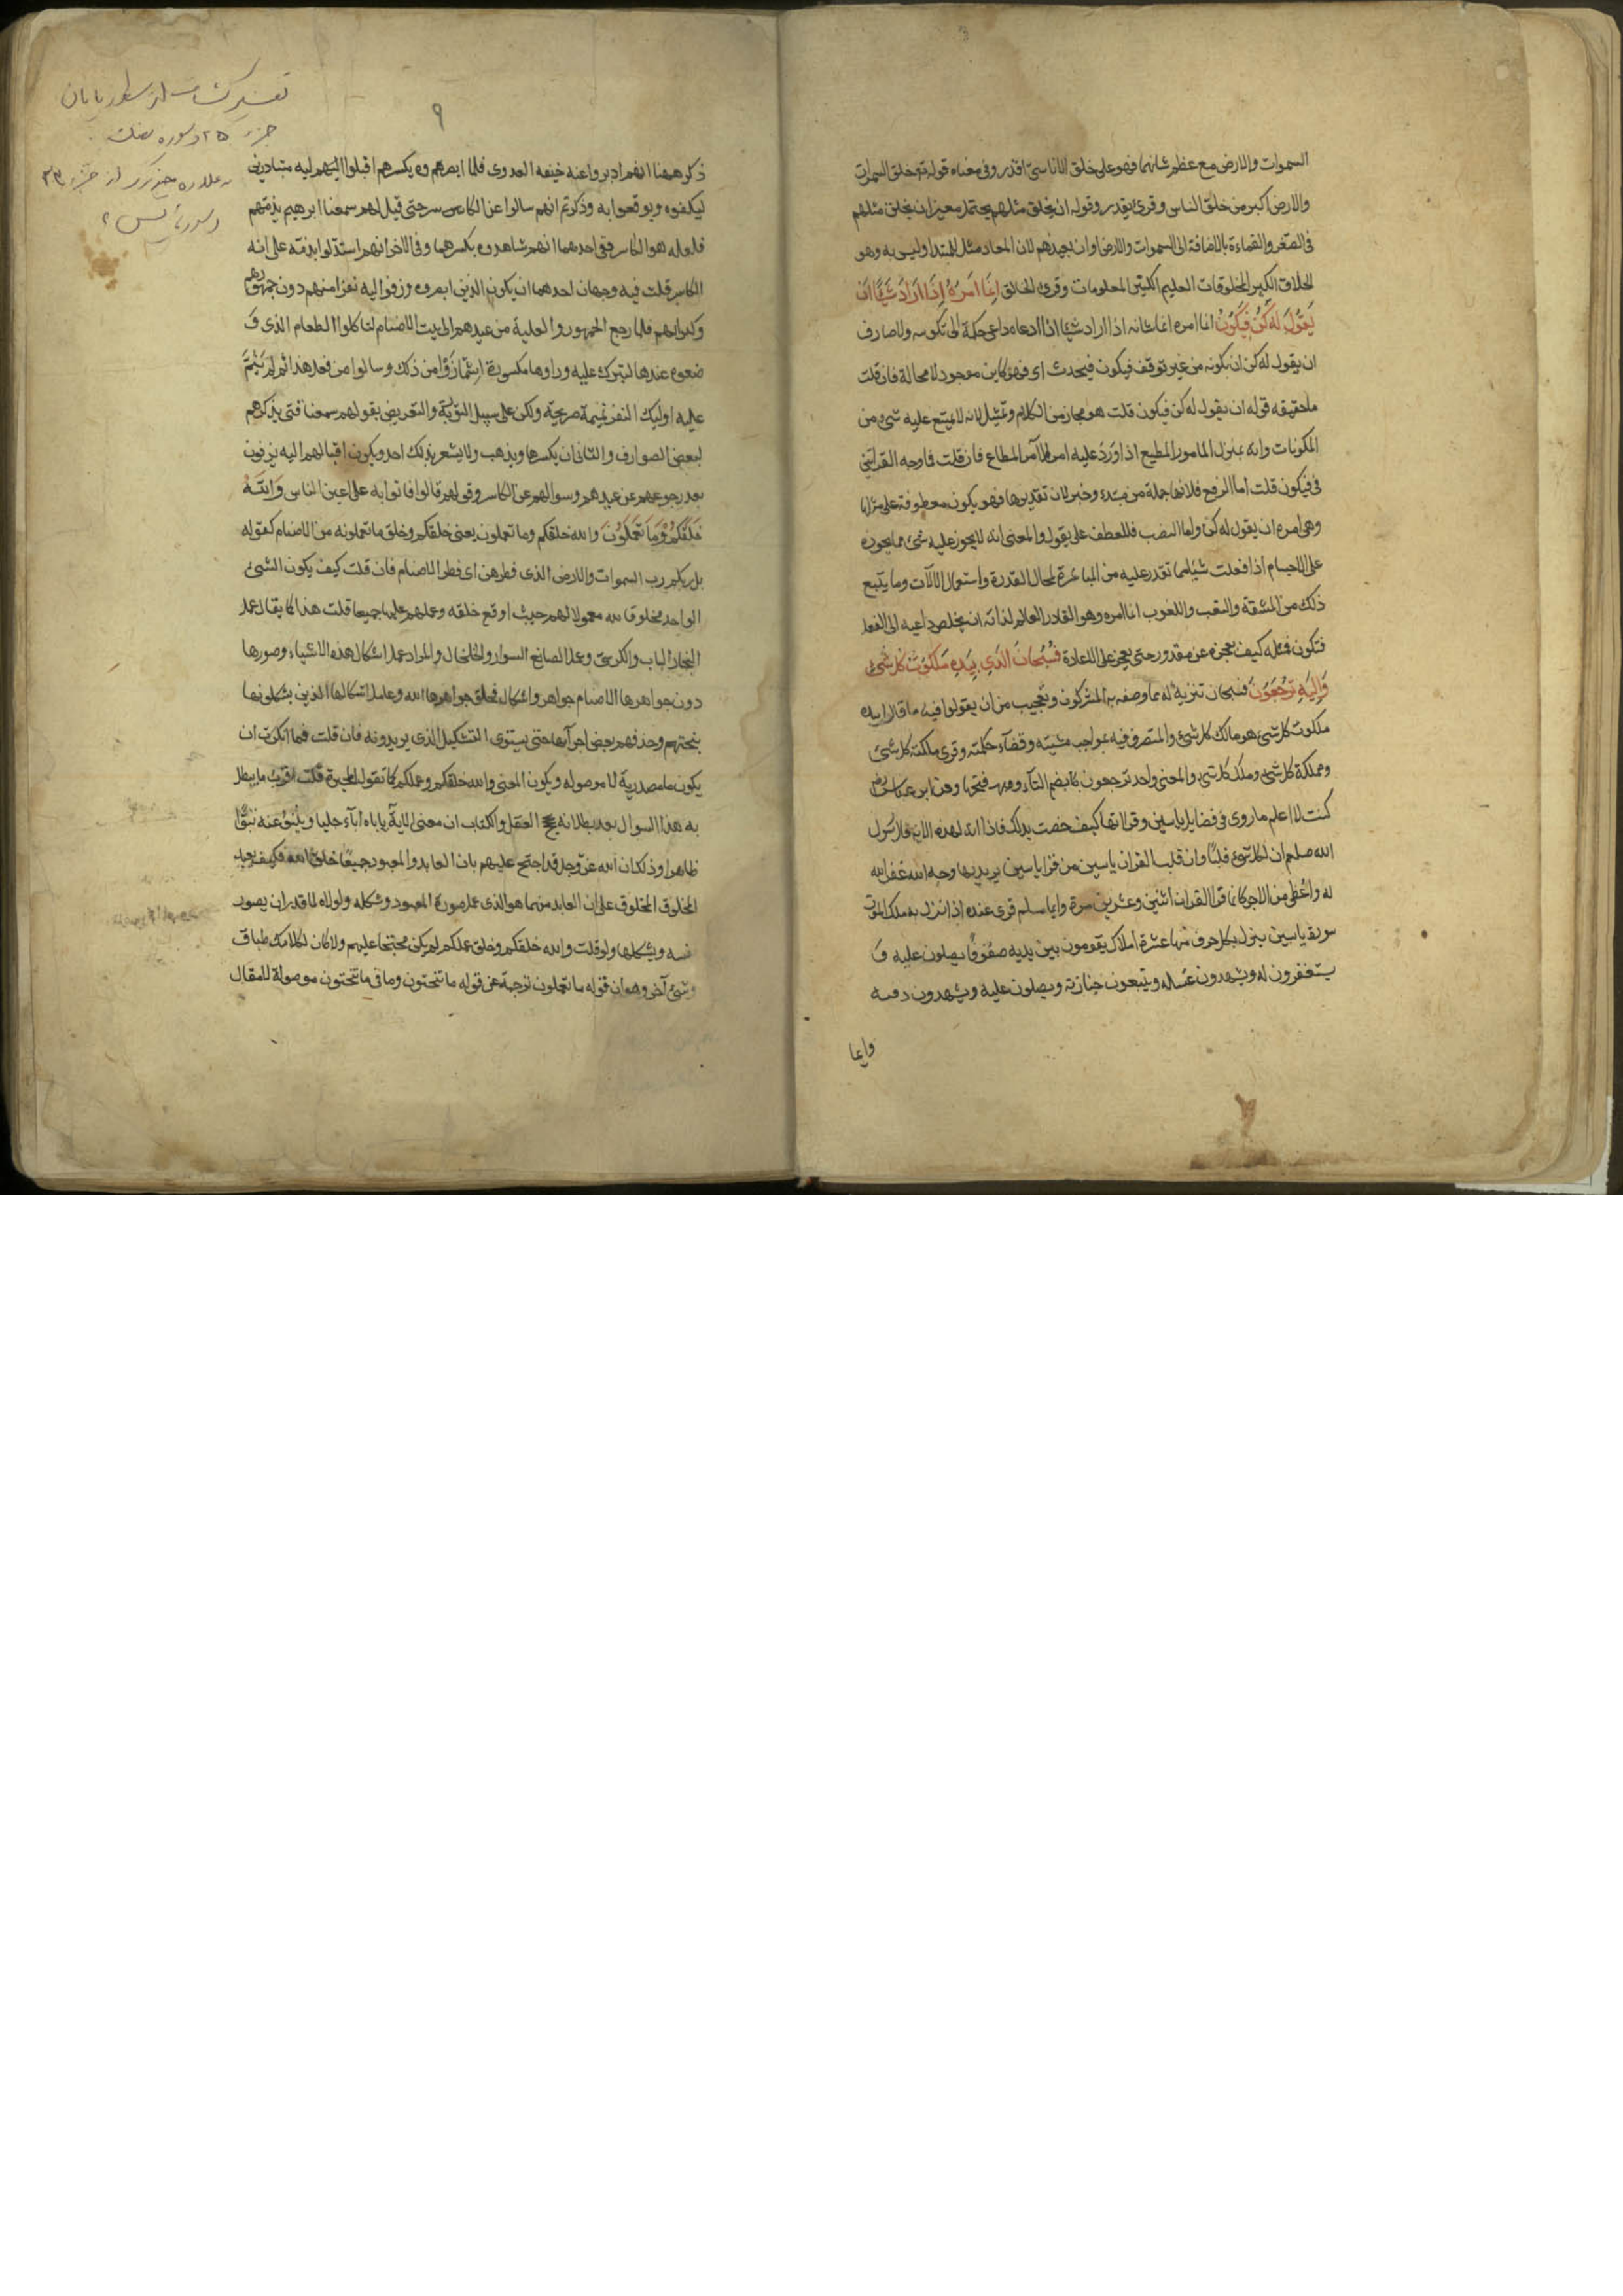 السموات والارض مع عظم شانهما فهو على خلق الاناسى اقدر وفى معناه قوله تع لخلق السموات
والارض اكبر من خلق الناس وقرئ يقدر وقوله ان يخلق مثلهم يحتمل معنيين ان يخلق مثلهم
فى الصغر والقماءة بالاضافة الى السموات والارض او ان يعيدهم لان المعاد مثل للمبتدا وليس به وهو
الخلاق الكثير المخلوقات العليم الكثير المعلومات وقرى الخالق انما امره اذا اراد شيئا ان
يقول له كن فيكون انما امره انما شانه اذا اراد شيئا اذا دعاه داعى حكمة الى تكوينه ولا صارف
ان يقول له كن ان يكونه من غير توقف فيكون فيحدث اى فهو كاين موجود لا محالة فان قلت
ما حقيقه قوله ان يقول له كن فيكون قلت هو مجاز من الكلام وتمثيل لانه لا يمتنع عليه شىء من
المكونات وانه بمنزلة المامور المطيع اذا ورد عليه امر الآمر المطاع فان قلت فما وجه القراتين
فى فيكون قلت اما الرفع فلانها جملة من مبتدء وخبر لان تقديرها فهو يكون معطوفة على مثلها
وهى امره ان يقول له كن واما النصب فللعطف على يقول والمعنى انه لا يجوز عليه شئ مما يجوز
على الاجسام اذا فعلت شيئا مما تقدر عليه من المباشرة لمحال القدرة واستعمال الآلات وما يتبع
ذلك من المشقة والتعب واللغوب انما امره وهو القادر العالم لذاته ان يخلص داعيه الى الفعل
فتكون فمثله كيف يعجز عن مقدور حتى يعجز على الاعادة فسبحان الذى بيده ملكوت كل شئ
واليه ترجعون فسبحان تنزية له مما وصفه به المشركون وتعجيب من ان يقولوا فيه ما قالوا بيده
ملكوت كل شئ هو مالك كل شئ والمتصرف فيه بمواجب مشيته وقضآء حكمته وقرى ملكة كل شئ
ومملكة كل شئ وملك كل شئ والمعنى واحد ترجعون بضم التآء وفتحها وعن ابن عباس رض
كنت لا اعلم ما روى فى فضايل ياسين وقراتها كيف خصت بذلك فاذا انه لهذه الاية قال رسول
الله صلعم ان لكل شئ قلبا وان قلب القران ياسين من قرا ياسين يريد بها وجه الله غفر الله
له واعطى من الاجر كانما قرا القران اثنين وعشرين مرة وايما مسلم قرى عنده اذا نزل به ملك الموت
سورة ياسين ينزل بكل حرف منها عشرة املاك يقومون بين يديه صفوفا يصلون عليه و
يستغفرون له ويشهدون غسله ويتبعون جنازته ويصلون عليه ويشهدون دفنه
وايما
٩
تفسير كشاف از سطور پايان
جزء
ذكر ههنا انهم ادبروا عنه خيفه العدوى فلما ابصرهم وه يكسرهم اقبلوا اليهم اليه متبادرين
ليكفوه ويوقعوا به وذكر ثم انهم سالوا عن الكاسر حتى قيل لهم سمعنا ابرهيم يذمهم
فلعله هو الكاسر ففى احدهما انهم شاهدوه يكسرهما وفى الاخر انهم استدلوا بذمه على انه
الكاسر قلت فيه وجهان احدهما ان يكون الذين ابصروه وزفوا اليه نفرا منهم دون جمهورهم
وكبرائهم فلما رجع الجمهور والعلية من عيدهم الى بيت الاصنام لياكلوا الطعام الذى و
ضعوه عندها لتبرك عليه وراوها مكسورة اشمازوا من ذلك وسالوا من فعل هذا ثم لم ينم
عليه اوليك النفر نميمة صريحة ولكن على سبيل التورية والتعريض بقولهم سمعنا فتى يذكرهم
لبعض الصوارف والثانى ان يكسرها ويذهب ولا يشعر بذلك احد ويكون اقبالهم اليه يزفون
بعد رجوعهم عن عيدهم وسوالهم عن الكاسر وقولهم قالوا فاتوا به على اعين الناس والله
خلقكم وما تعملون والله خلقكم وما تعملون يعنى خلقكم وخلق ما تعملونه من الاصنام كقوله
بل ربكم رب السموات والارض الذى فطرهن اى فطر الاصنام فان قلت كيف يكون الشئ
الواحد مخلوقا لله معمولا لهم حيث اوقع خلقه وعملهم عليها جميعا قلت هذا كما يقال عمل
النجار الباب والكرسى وعمل الصايغ السوار والخلخال والمراد عمل اشكال هذه الاشياء وصورها
دون جواهرها الاصنام جواهر واشكال فخالق جواهرها الله وعامل اشكالها الذين يشكلونها
بنحتهم وحذفهم بعض اجزآئها حتى يستوى التشكيل الذى يريدونه فان قلت فما انكرت ان
يكون ما مصدرية لا موصوله ويكون المعنى والله خلقكم وعملكم كما تقول المجبرة قلت اقرب ما يبطل
به هذا السوال بعد بطلانه بحجج العقل والكتاب ان معنى الاية ياباه اباء جليا وينبو عنه نبوا
ظاهرا وذلك ان الله عز وجل قد احتج عليهم بان العابد والمعبود جميعا خلق الله فكيف يعبد
المخلوق المخلوق على ان العابد منهما هو الذى عمل صورة المعبود وشكله ولولاه لما قدر ان يصور
نفسه ويشكلها ولو قلت والله خلقكم وخلق عملكم لم يكن محتجا عليهم ولا كان لكلامك طباق
وشئ آخر وهو ان قوله ما تعملون ترجمة عن قوله ما تنحتون وما فى ما تنحتون موصولة لا مقال